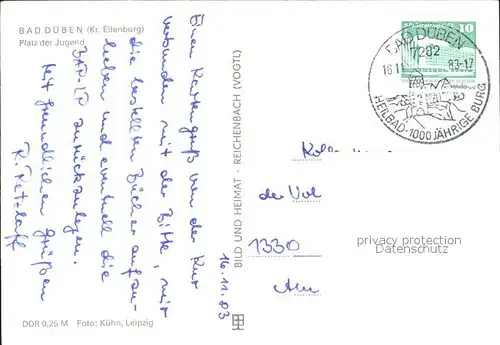 BAD DÜBEN (Kr. Eilenburg)
Platz der Jugend
16.11.83
Einen Kartengruß von der Kur
verbunden mit der Bitte, mir
die bestellten Bücher aufzu-
heben und eventuell die
zurückzulegen.
Mit freundlichen Grüßen
R.
DDR 0,25 M Foto: Kühn, Leipzig
BILD UND HEIMAT · REICHENBACH (VOGTL)
10
BAD DÜBEN
7282
16.11. 83-17
HEILBAD · 1000 JÄHRIGE BURG
der Vol
1330
privacy protection
Datenschutz